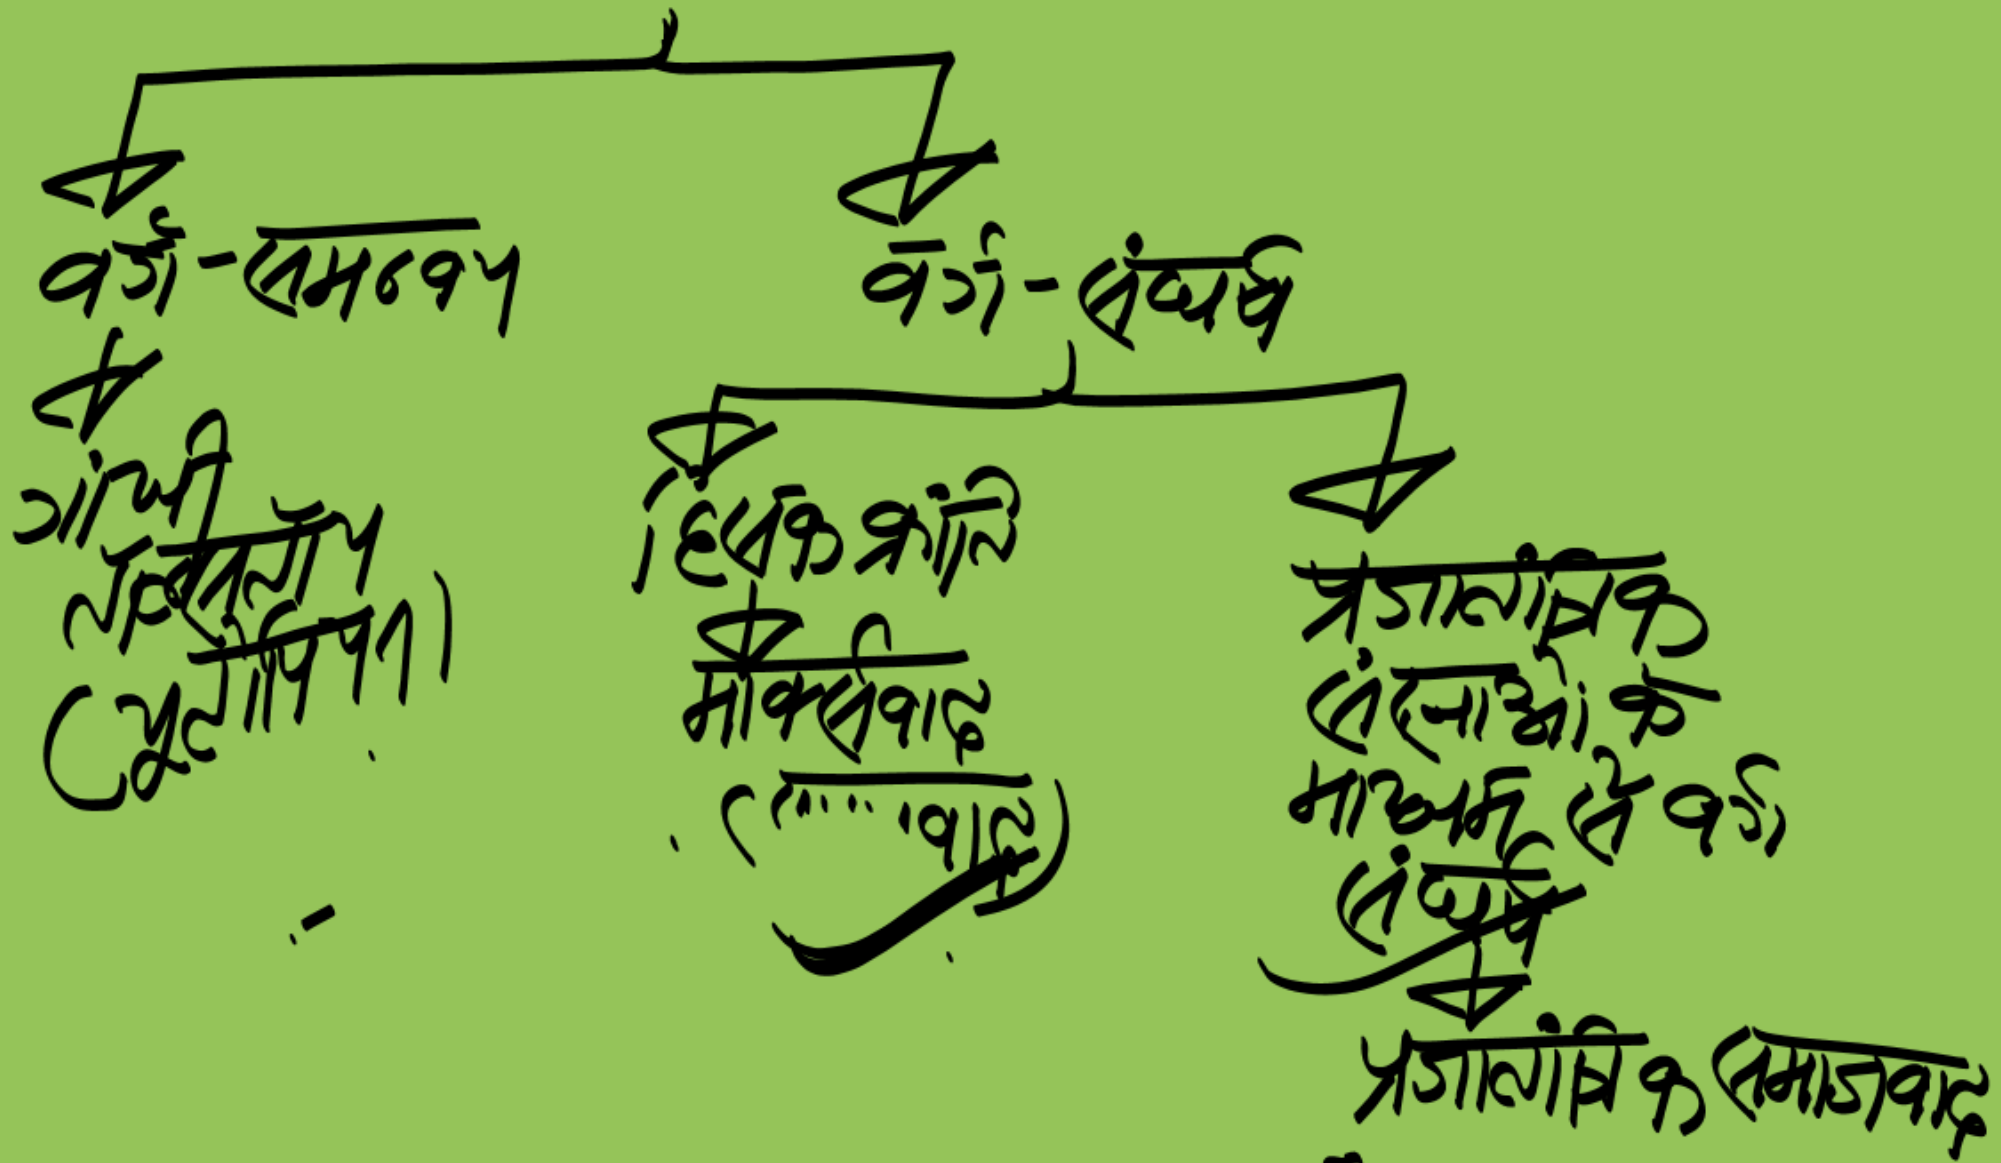 वर्ग-समन्वय
वर्ग-संघर्ष
गांधी
(यूटोपियन)
हिंसक क्रांति
मार्क्सवाद
वाद)
प्रजातांत्रिक
संस्थाओं के
माध्यम से वर्ग
संघर्ष
प्रजातांत्रिक समाजवाद